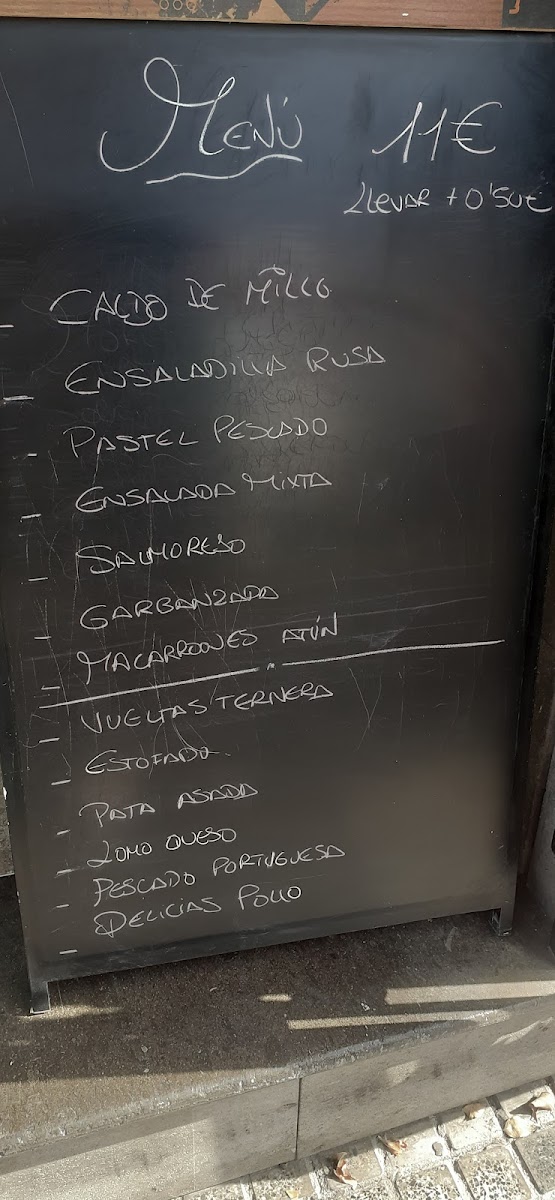 Menú 11€
Llevar + 0'50€
- Caldo de Millo
- Ensaladilla Rusa
- Pastel Pescado
- Ensalada Mixta
- Salmoreso
- Garbanzada
- Macarrones Atún
- Vueltas Ternera
- Estofado
- Pata Asada
- Lomo Queso
- Pescado Portuguesa
- Delicias Pollo